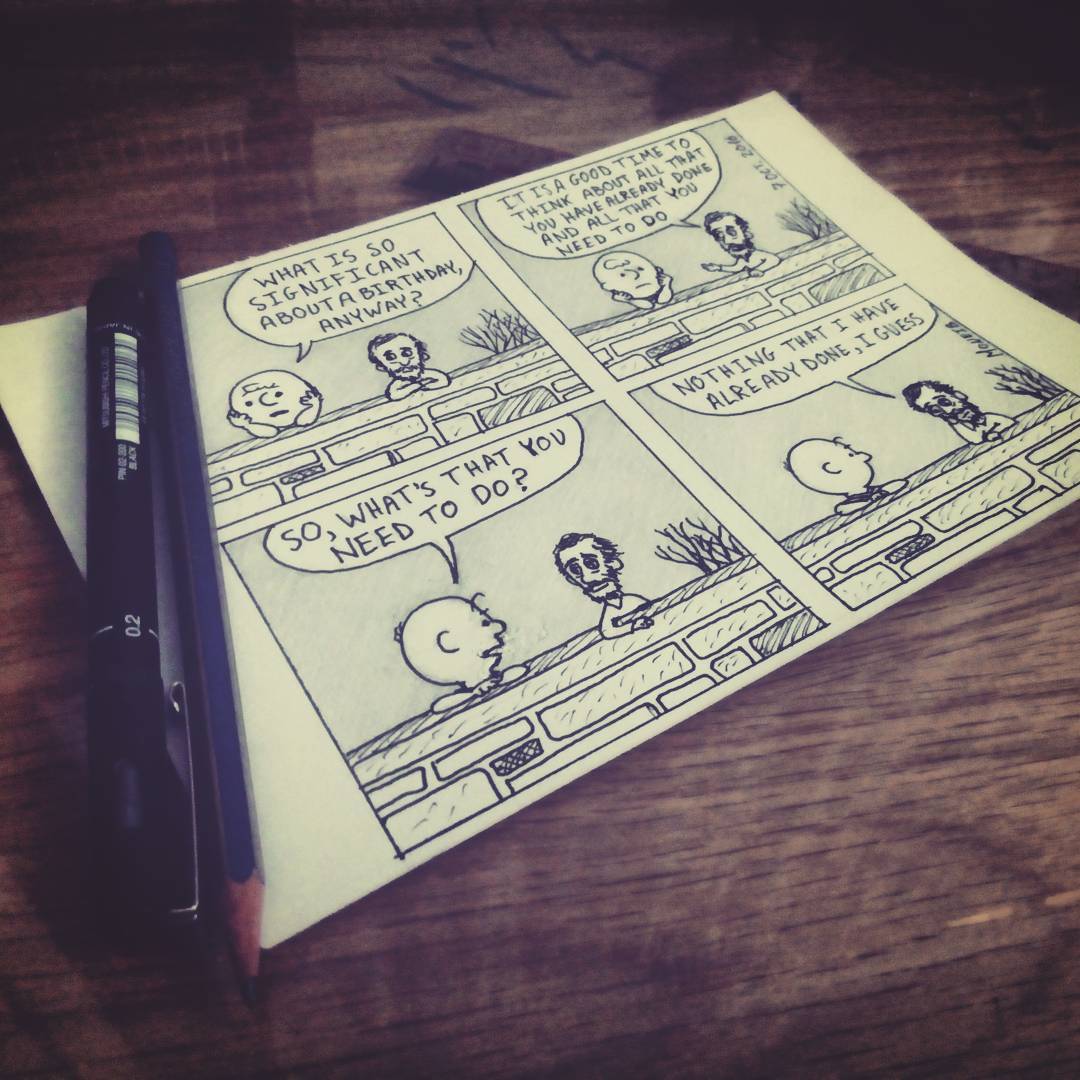 WHAT IS SO
SIGNIFICANT
ABOUT A BIRTHDAY,
ANYWAY?
IT IS A GOOD TIME TO
THINK ABOUT ALL THAT
YOU HAVE ALREADY DONE
AND ALL THAT YOU
NEED TO DO
7 OCT. 2016
SO, WHAT'S THAT YOU
NEED TO DO?
NOTHING THAT I HAVE
ALREADY DONE, I GUESS
PIN 02-200
BLACK
0.2